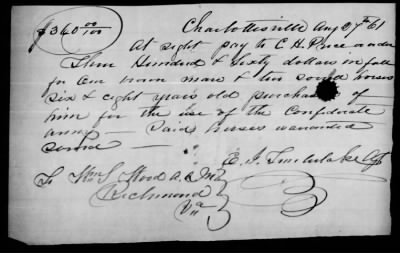 $360 00/100 Charlottesville Aug 27th 61
At sight pay to C. H. Price order
Three Hundred & Sixty dollars in full
for one man & two horses
six & eight years old purchased of
him for the use of the Confederate
army — Said horses warranted
sound —
E. J. Timberlake Agt
To Wm S. Wood A. Q. M
Richmond
Va